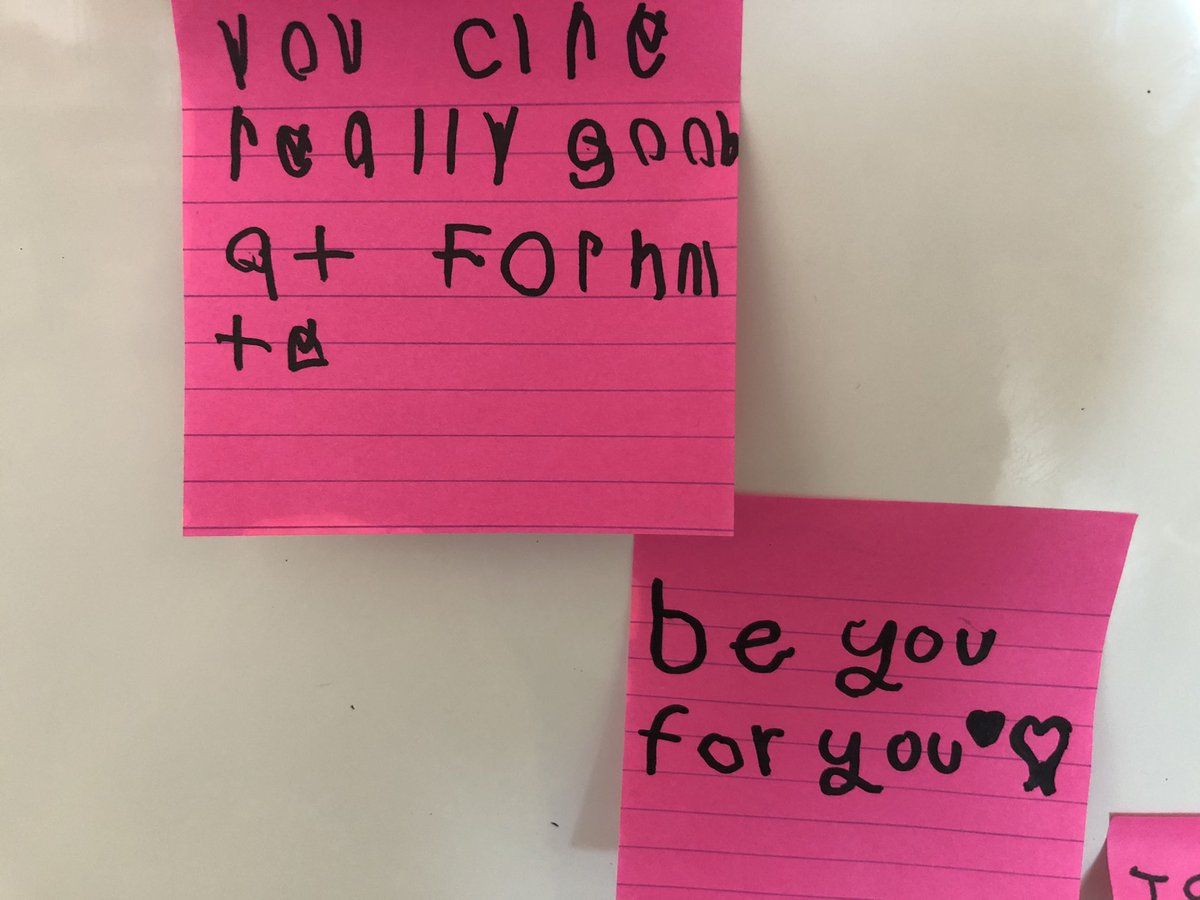 you are
really goob
at Fornm
te
be you
for you